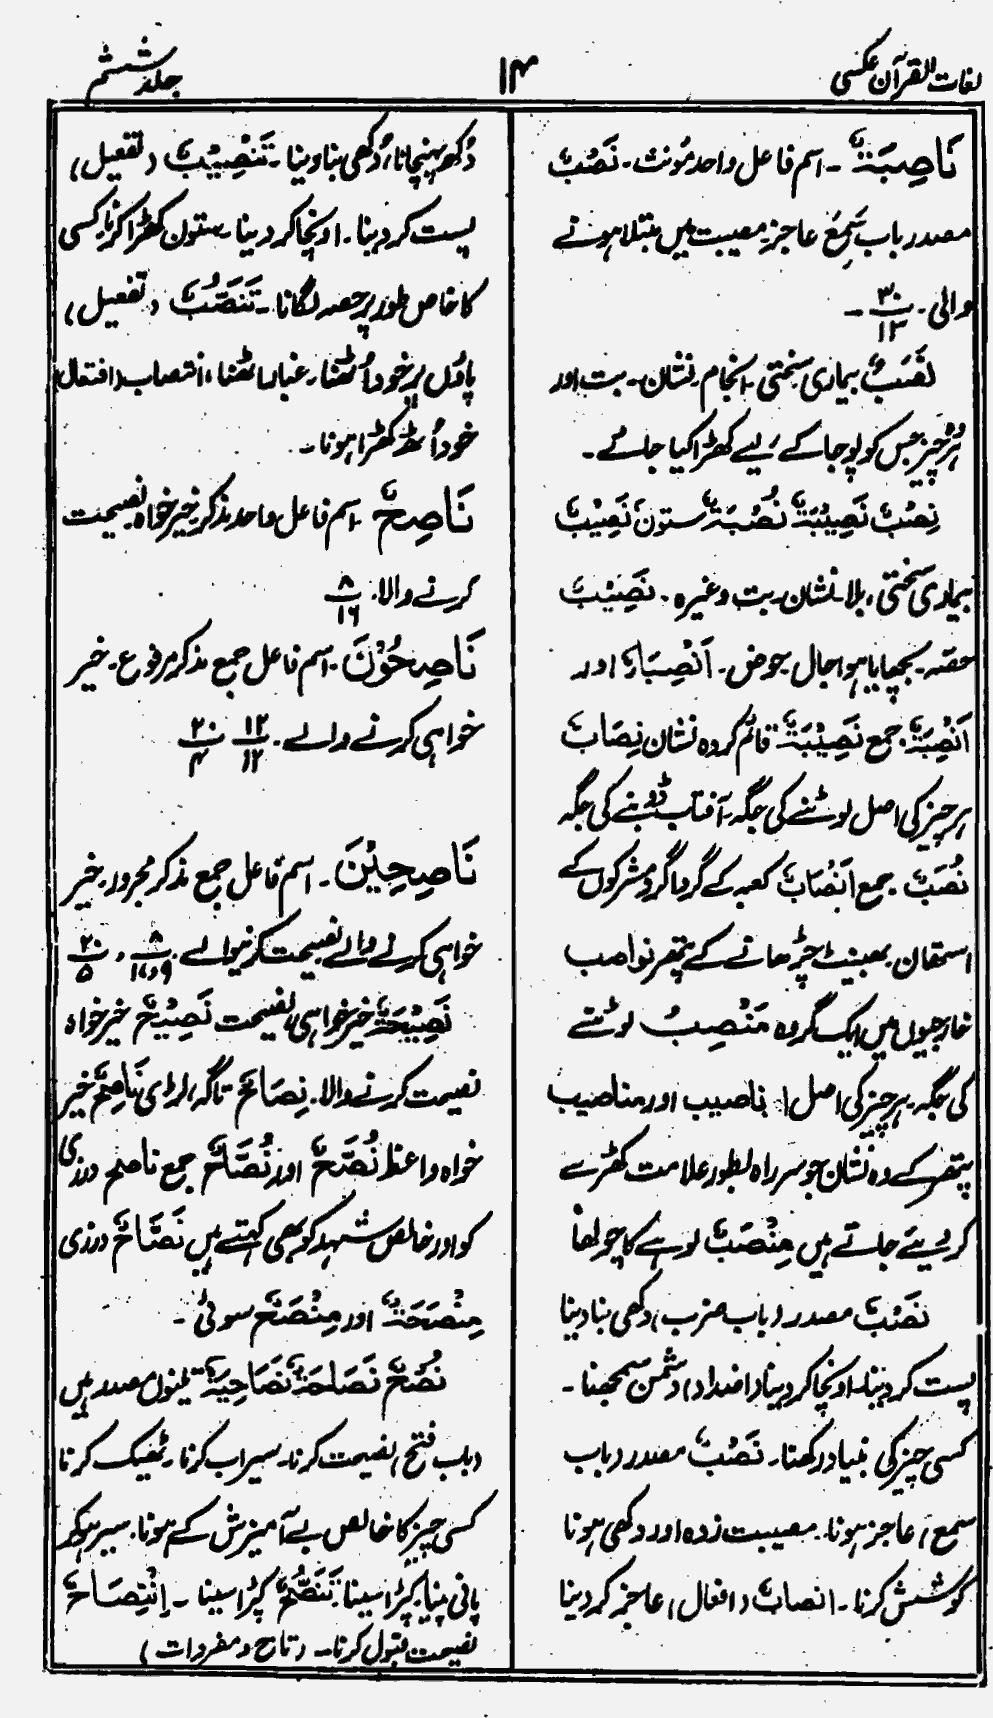 لغات القرآن عکسی
۱۴
جلد ششم
نَاصِبَۃٌ ۔ اسم فاعل واحد مؤنث ۔ نَصْبٌ
مصدر باب سَمِعَ عاجز۔ مصیبت میں مبتلا ہونے
والی۔ ۳۰/۱۳ ۔
نَصَبٌ بیماری سختی۔ انجام نشان۔ بت اور
ہر چیز جس کو پوجا کے لیے کھڑا کیا جائے ۔
نِصْبٌ نَصِیْبَۃٌ نُصْبَۃٌ ستون نَصِیْبٌ
بیماری سختی، بلا نشان۔ بت وغیرہ ۔ نَصِیْبٌ
حصہ۔ بچھایا ہوا جال حوض ۔ اَنْصِبَاءُ اور
اَنْصِبَۃٌ جمع نَصِیْبَۃٌ قائم کردہ نشان نِصَابٌ
ہر چیز کی اصل لوٹنے کی جگہ۔ آفتاب ڈوبنے کی جگہ
نُصُبٌ ۔ جمع اَنْصَابٌ کعبہ کے گرداگرد مشرکوں کے
استھان۔ بھینٹ چڑھانے کے پتھر نواصب
خارجیوں میں ایک گروہ مَنْصِبٌ لوٹنے
کی جگہ۔ ہر چیز کی اصل مناصیب اور مناصیب
پتھر کے وہ نشان جو سر راہ بطور علامت کھڑے
کر دیئے جاتے ہیں مِنْصَبٌ لوہے کا چولھا
نَصْبٌ مصدر (باب ضرب) دکھی بنا دینا
پست کر دینا۔ اونچا کر دینا (اضداد) دشمن سمجھنا ۔
کسی چیز کی بنیاد رکھنا۔ نَصْبٌ مصدر (باب
سمع) عاجز ہونا۔ مصیبت زدہ اور دکھی ہونا
کوشش کرنا ۔ انصاب (افعال) عاجز کر دینا
دُکھ پہنچانا، دُکھی بنا دینا ۔ تَنْصِیْبٌ (تفعیل)
پست کر دینا ۔ اونچا کر دینا۔ ستون کھڑا کرنا۔ کسی
کا خاص طور پر حصہ لگانا ۔ تَنَصُّبٌ (تفعیل)
پاؤں پر خود اُٹھنا۔ غبار اٹھنا، انتصاب (افتعال)
خود اُٹھ کھڑا ہونا ۔
نَاصِحٌ ۔ اسم فاعل واحد مذکر۔ خیر خواہ نصیحت
کرنے والا۔ ۸/۱۶
نَاصِحُوْنَ ۔ اسم فاعل جمع مذکر مرفوع ۔ خیر
خواہی کرنے والے ۔ ۱۲/۱۲ ۲۰/۴
نَاصِحِیْنَ ۔ اسم فاعل جمع مذکر مجرور۔ خیر
خواہی کرنے والے نصیحت کرنیوالے ۔ ۸/۹و۱۶ ، ۲۰/۵
نَصِیْحَۃٌ خیر خواہی، نصیحت نَصِیْحٌ خیر خواہ
نصیحت کرنے والا۔ نِصَاحٌ تاگہ، لڑی نَاصِحٌ خیر
خواہ واعظ نُصَّحٌ اور نُصَّاحٌ جمع ناصح درزی
کو اور خالص شہد کو بھی کہتے ہیں نَصَّاحٌ درزی
مِنْصَحَۃٌ اور مِنْصَحٌ سوئی ۔
نُصْحٌ نَصَاحَۃٌ نَصَاحِیَۃٌ تینوں مصدر ہیں
(باب فتح) نصیحت کرنا۔ سیراب کرنا۔ ٹھیک کرنا
کسی چیز کا خالص بے آمیزش کے ہونا۔ سیر ہو کر
پانی پینا۔ کپڑا سینا۔ تَنَصُّحٌ کپڑا سینا ۔ اِنْتِصَاحٌ
نصیحت قبول کرنا ۔ (تاج و مفردات)